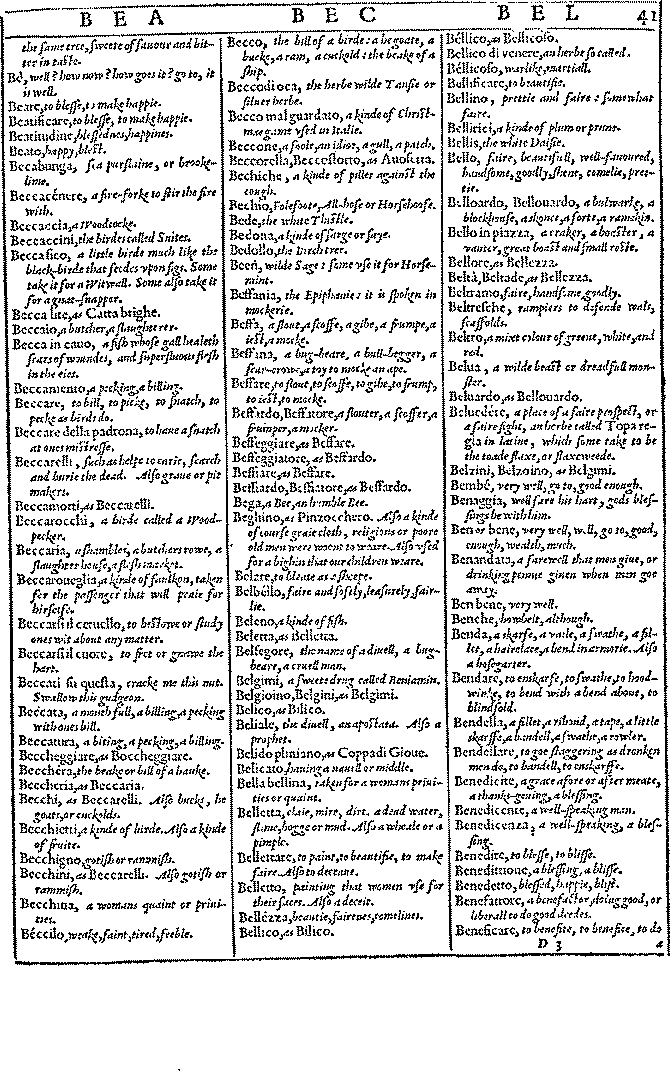 B E A
B E C
B E L
41
the same tree, sweete of sauour and bit-
ter in taste.
Bé, well? how now? how goes it? go to, it
is well.
Beare, to blesse, to make happie.
Beatificare, to blesse, to make happie.
Beatitudine, blessednes, happines.
Beato, happy, blest.
Beccabunga, sea purslaine, or brooke-
lime.
Beccacénere, a fire-forke to stir the fire
with.
Beccaccia, a Woodcocke.
Beccaccini, the birdes called Snites.
Beccafico, a little birde much like the
black-birde that feedes vpon figs. Some
take it for a Witwall. Some also take it
for a gnat-snapper.
Becca lite, as Catta brighe.
Beccaio, a butcher, a slaughterer.
Becca in cauo, a fish whose gall healeth
scars of woundes, and superfluous flesh
in the eies.
Beccamento, a pecking, a billing.
Beccare, to bill, to picke, to snatch, to
pecke as birds do.
Beccare della padrona, to haue a snatch
at ones mistresse.
Beccarelli, such as helpe to carie, search
and burie the dead. Also graue or pit
makers.
Beccamorti, as Beccarelli.
Beccarocchi, a birde called a Wood-
pecker.
Beccaria, a shambles, a butchers rowe, a
slaughter house, a flesh market.
Beccaroueglia, a kinde of faulkon, taken
for the passenger that will praie for
hirselfe.
Beccarsi il ceruello, to bestowe or study
ones wit about any matter.
Beccarsi il cuore, to fret or gnawe the
hart.
Beccati su questa, cracke me this nut.
Swallow this gudgeon.
Beccata, a mouth full, a billing, a pecking
with ones bill.
Beccatura, a biting, a pecking, a billing.
Beccheggiare, as Boccheggiare.
Becchera, the beake or bill of a hauke.
Beccheria, as Beccaria.
Becchi, as Beccarelli. Also bucks, he
goats, or cuckolds.
Becchietti, a kinde of birde. Also a kinde
of fruite.
Becchigno, gotish or rammish.
Becchini, as Beccarelli. Also gotish or
rammish.
Becchina, a womans quaint or priui-
ties.
Béccilo, weake, faint, tired, feeble.
Becco, the bill of a birde: a hegoate, a
bucke, a ram, a cuckold: the beake of a
ship.
Beccod'oca, the herbe wilde Tansie or
siluer herbe.
Becco mal guardato, a kinde of Christ-
mas game vsed in Italie.
Beccone, a foole, an idiot, a gull, a patch.
Beccorella, Beccestorto, as Auosetta.
Bechiche, a kinde of pilles against the
cough.
Bechio, Folefoote, All-hose or Horsehoofe.
Bede, the white Thistle.
Bedona, a kinde of sarge or saye.
Bedollo, the Birch tree.
Been, wilde Sage: some vse it for Horse-
mint.
Beffania, the Epiphanie: it is spoken in
mockerie.
Beffa, a flout, a scoffe, a gibe, a frumpe, a
iest, a mocke.
Beffana, a bug-beare, a bull-begger, a
scar-crow, a toy to mocke an ape.
Beffare, to flout, to scoffe, to gibe, to frump,
to iest, to mocke.
Beffardo, Beffatore, a flouter, a scoffer, a
frumper, a mocker.
Beffeggiare, as Beffare.
Beffeggiatore, as Beffardo.
Beffiare, as Beffare.
Beffiardo, Beffiatore, as Beffardo.
Bega, a Bee, an humble Bee.
Beghino, as Pinzocchero. Also a kinde
of course graie cloth, religious or poore
old men were woont to weare. Also vsed
for a biggin that our children weare.
Belare, to bleate as a sheepe.
Belbello, faire and softly, leasurely, fair-
lie.
Beleno, a kinde of fish.
Beletta, as Belletta.
Belfegore, the name of a diuell, a bug-
beare, a cruell man.
Belgimi, a sweete drug called Beniamin.
Belgioino, Belgini, as Belgimi.
Belico, as Bilico.
Beliale, the diuell, an apostata. Also a
prophet.
Belido pliniano, as Coppa di Gioue.
Belicato, hauing a nauell or middle.
Bella bellina, taken for a womans priui-
ties or quaint.
Belletta, claie, mire, dirt, a dead water,
slime, bogge or mud. Also a wheale or a
pimple.
Bellettare, to paint, to beautifie, to make
faire. Also to deceaue.
Belletto, painting that women vse for
their faces. Also a deceit.
Bellézza, beautie, fairenes, comelines.
Bellico, as Bilico.
Béllico, as Bellicoso.
Bellico di venere, an herbe so called.
Béllicoso, warlike, martiall.
Bellificare, to beautifie.
Bellino, prettie and faire: somewhat
faire.
Bellirici, a kinde of plum or prune.
Bellis, the white Daisie.
Bello, faire, beautifull, well-fauoured,
handsome, goodly, shent, comelie, pret-
tie.
Belloardo, Bellouardo, a bulwarke, a
blockhouse, a skonce, a forte, a ramekin.
Bello in piazza, a craker, a boaster, a
vanter, great boast and small roste.
Bellore, as Bellezza.
Beltà, Beltade, as Bellezza.
Beltramo, faire, handsome, goodly.
Beltresche, rampiers to defende wals,
scaffolds.
Beltro, a mixt colour of greene, white, and
red.
Belua, a wilde beast or dreadfull mon-
ster.
Beluardo, as Bellouardo.
Beluedére, a place of a faire prospect, or
a faire sight, an herbe called Topa re-
gia in latine, which some take to be
the toade flaxe, or flaxeweede.
Belzini, Belzoino, as Belgimi.
Bembé, very well, go to, good enough.
Benaggia, well fare his hart, gods bles-
sing be with him.
Ben or bene, very well, well, go to, good,
enough, wealth, much.
Benandata, a farewell that men giue, or
drinking pennie giuen when men goe
away.
Ben bene, very well.
Benche, howbeit, although.
Benda, a skarfe, a vaile, a swathe, a fil-
let, a hairelace, a bend in armorie. Also
a hosegarter.
Bendare, to enskarfe, to swathe, to hood-
winke, to bend with a bend about, to
blindfold.
Bendella, a fillet, a riband, a tape, a little
skarffe, a bandell, a swathe, a rowler.
Bendellare, to goe staggering as dronken
men do, to bandell, to enskarffe.
Benedicite, a grace afore or after meate,
a thanks-giuing, a blessing.
Benedicente, a well-speaking man.
Benedicenza, a well-speaking, a bles-
sing.
Benedire, to blesse, to blisse.
Benedittione, a blessing, a blisse.
Benedetto, blessed, happie, blist.
Benefattore, a benefactor, doing good, or
liberall to do good deedes.
Beneficare, to benefite, to benefice, to do
D 3
a